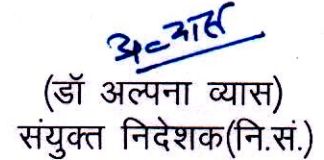 (डॉ अल्पना व्यास)
संयुक्त निदेशक(नि.सं.)